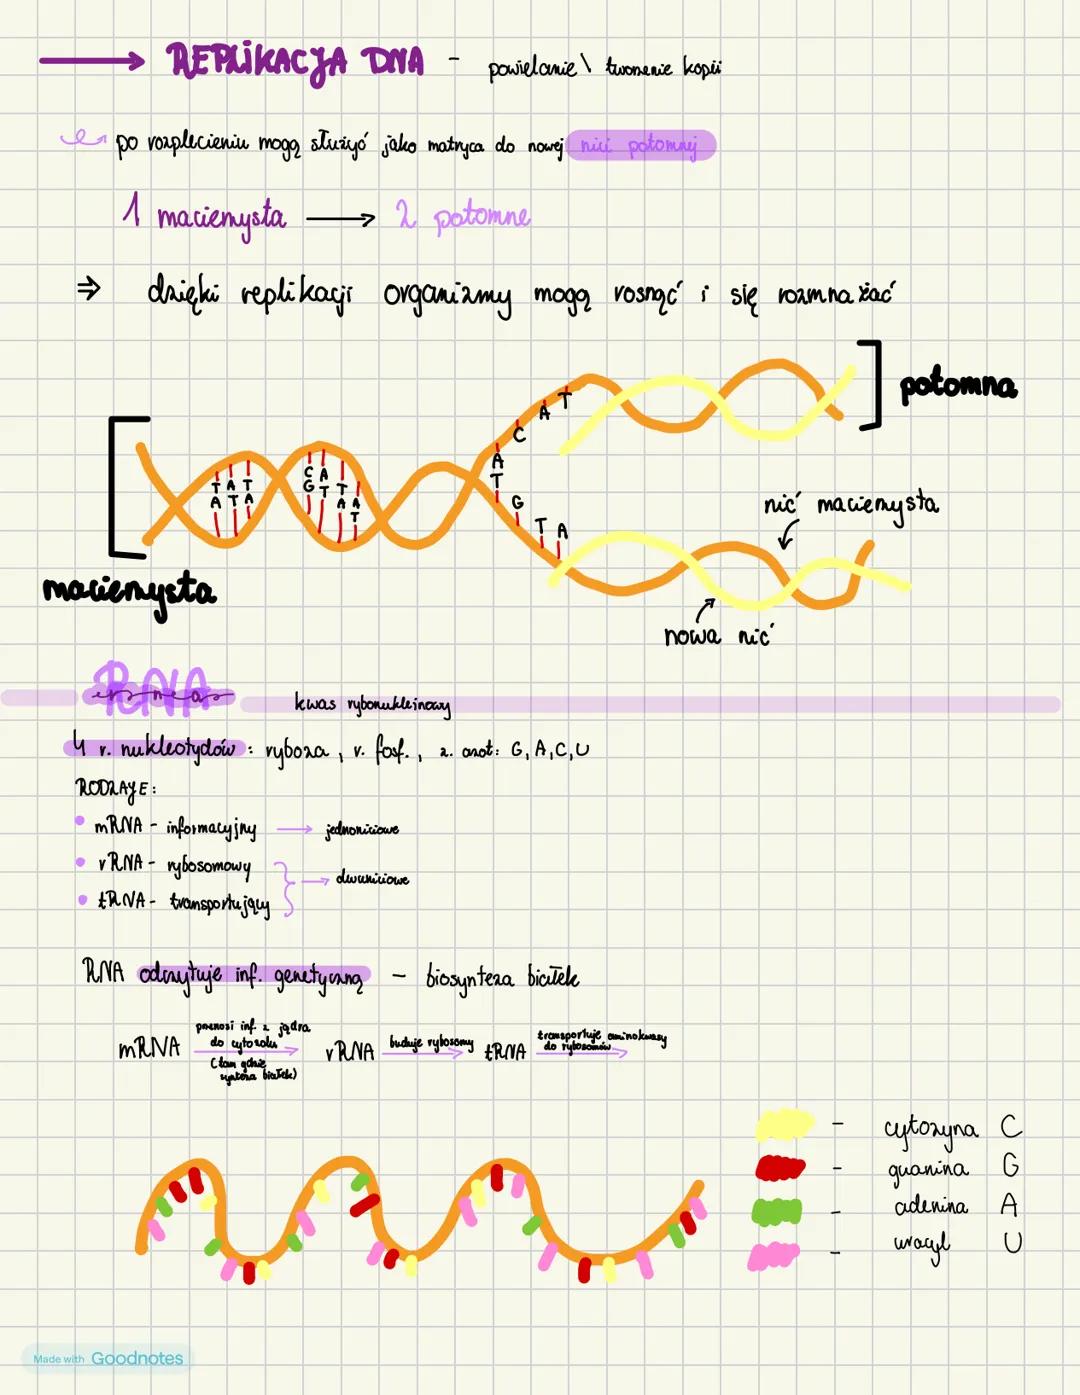 REPLIKACJA DNA - powielanie \ tworzenie kopii
po rozpleceniu mogą służyć jako matryca do nowej nici potomnej
1 macierzysta → 2 potomne
⇒ dzięki replikacji organizmy mogą rosnąć i się rozmnażać
potomna
T
A
C
A
T A T
A T A
C A
G T
T A
A T
A
T
G
T A
nić macierzysta
macierzysta
nowa nić
RNA
kwas rybonukleinowy
4 r. nukleotydów: ryboza, r. fosf., z. azot: G, A, C, U
RODZAJE:
• mRNA - informacyjny → jednoniciowe
• rRNA - rybosomowy
→ dwuniciowe
• tRNA - transportujący
RNA odczytuje inf. genetyczną - biosynteza białek
mRNA przenosi inf. z jądra do cytozolu (tam gdzie synteza białek) → rRNA buduje rybosomy → tRNA transportuje aminokwasy do rybosomów →
- cytozyna C
- guanina G
- adenina A
- uracyl U
Made with Goodnotes